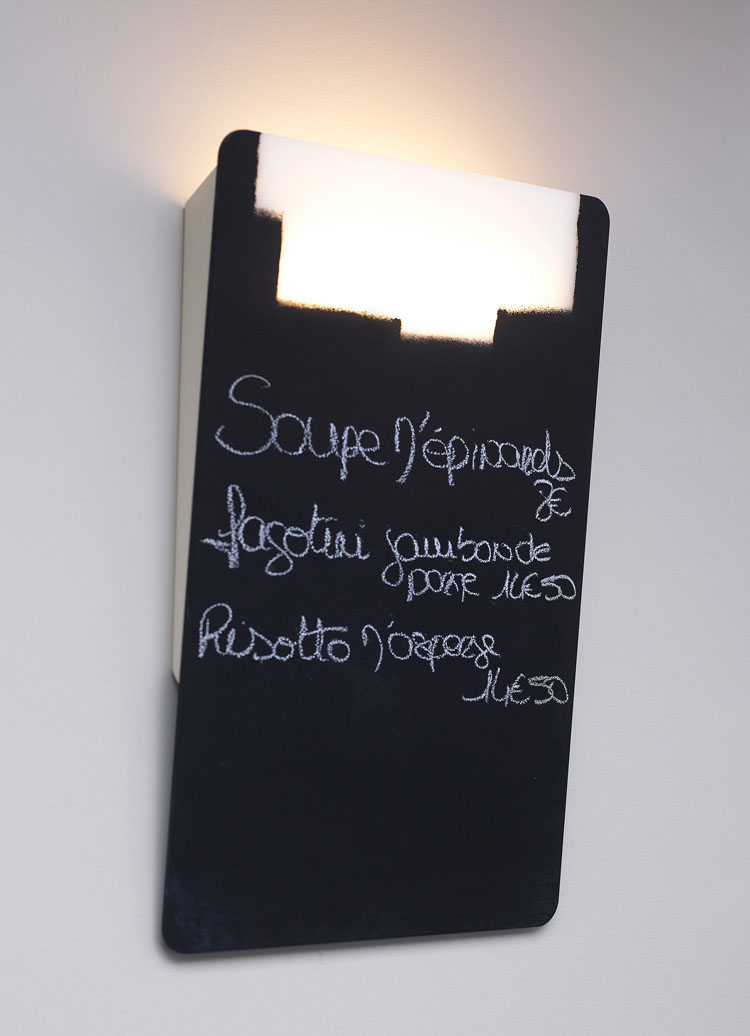 Soupe d'épinards
7€
fagotini jambon de
parme 14€50
Risotto d'asperge
14€50